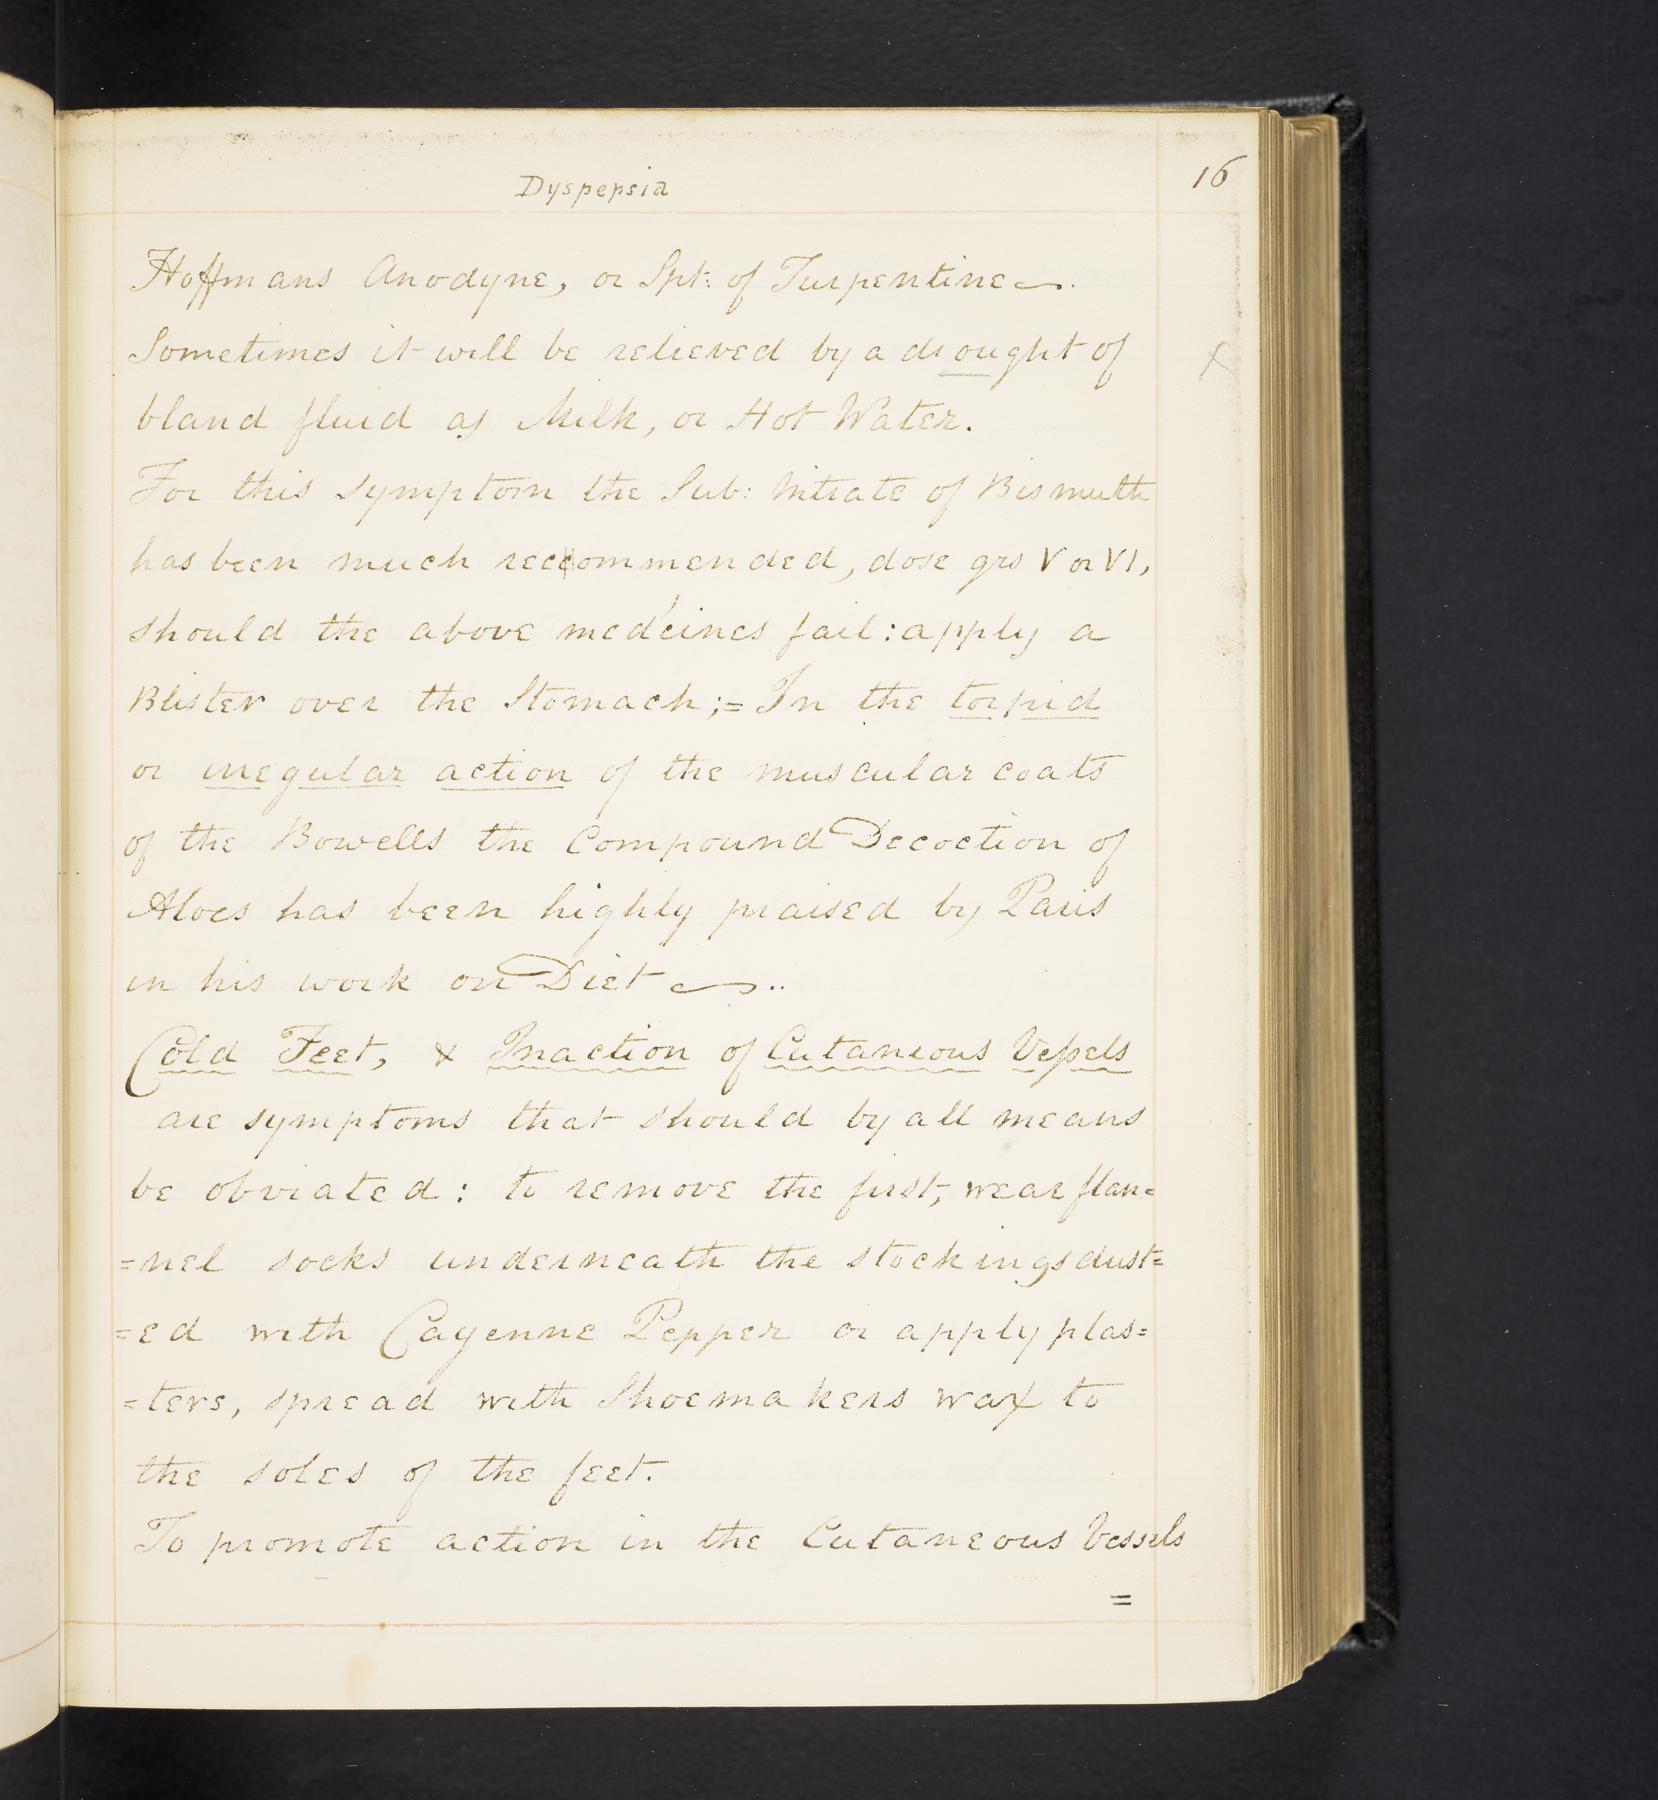 Dyspepsia
16
Hoffmans Anodyne, or Spt: of Turpentine.
Sometimes it will be relieved by a drought of
bland fluid as Milk, or Hot Water.
For this symptom the Sub: Nitrate of Bismuth
has been much reccommended, dose grs V or VI,
should the above medcines fail: apply a
Blister over the Stomach;= In the torpid
or irregular action of the muscular coats
of the Bowells the Compound Decoction of
Aloes has been highly praised by Paris
in his work on Diet ..
Cold Feet, & Inaction of Cutaneous Vessels
are symptoms that should by all means
be obviated: to remove the first, wear flan=
=nel socks underneath the stockings dust=
=ed with Cayenne Pepper or apply plas=
=ters, spread with Shoemakers wax to
the soles of the feet.
To promote action in the Cutaneous Vessels
=